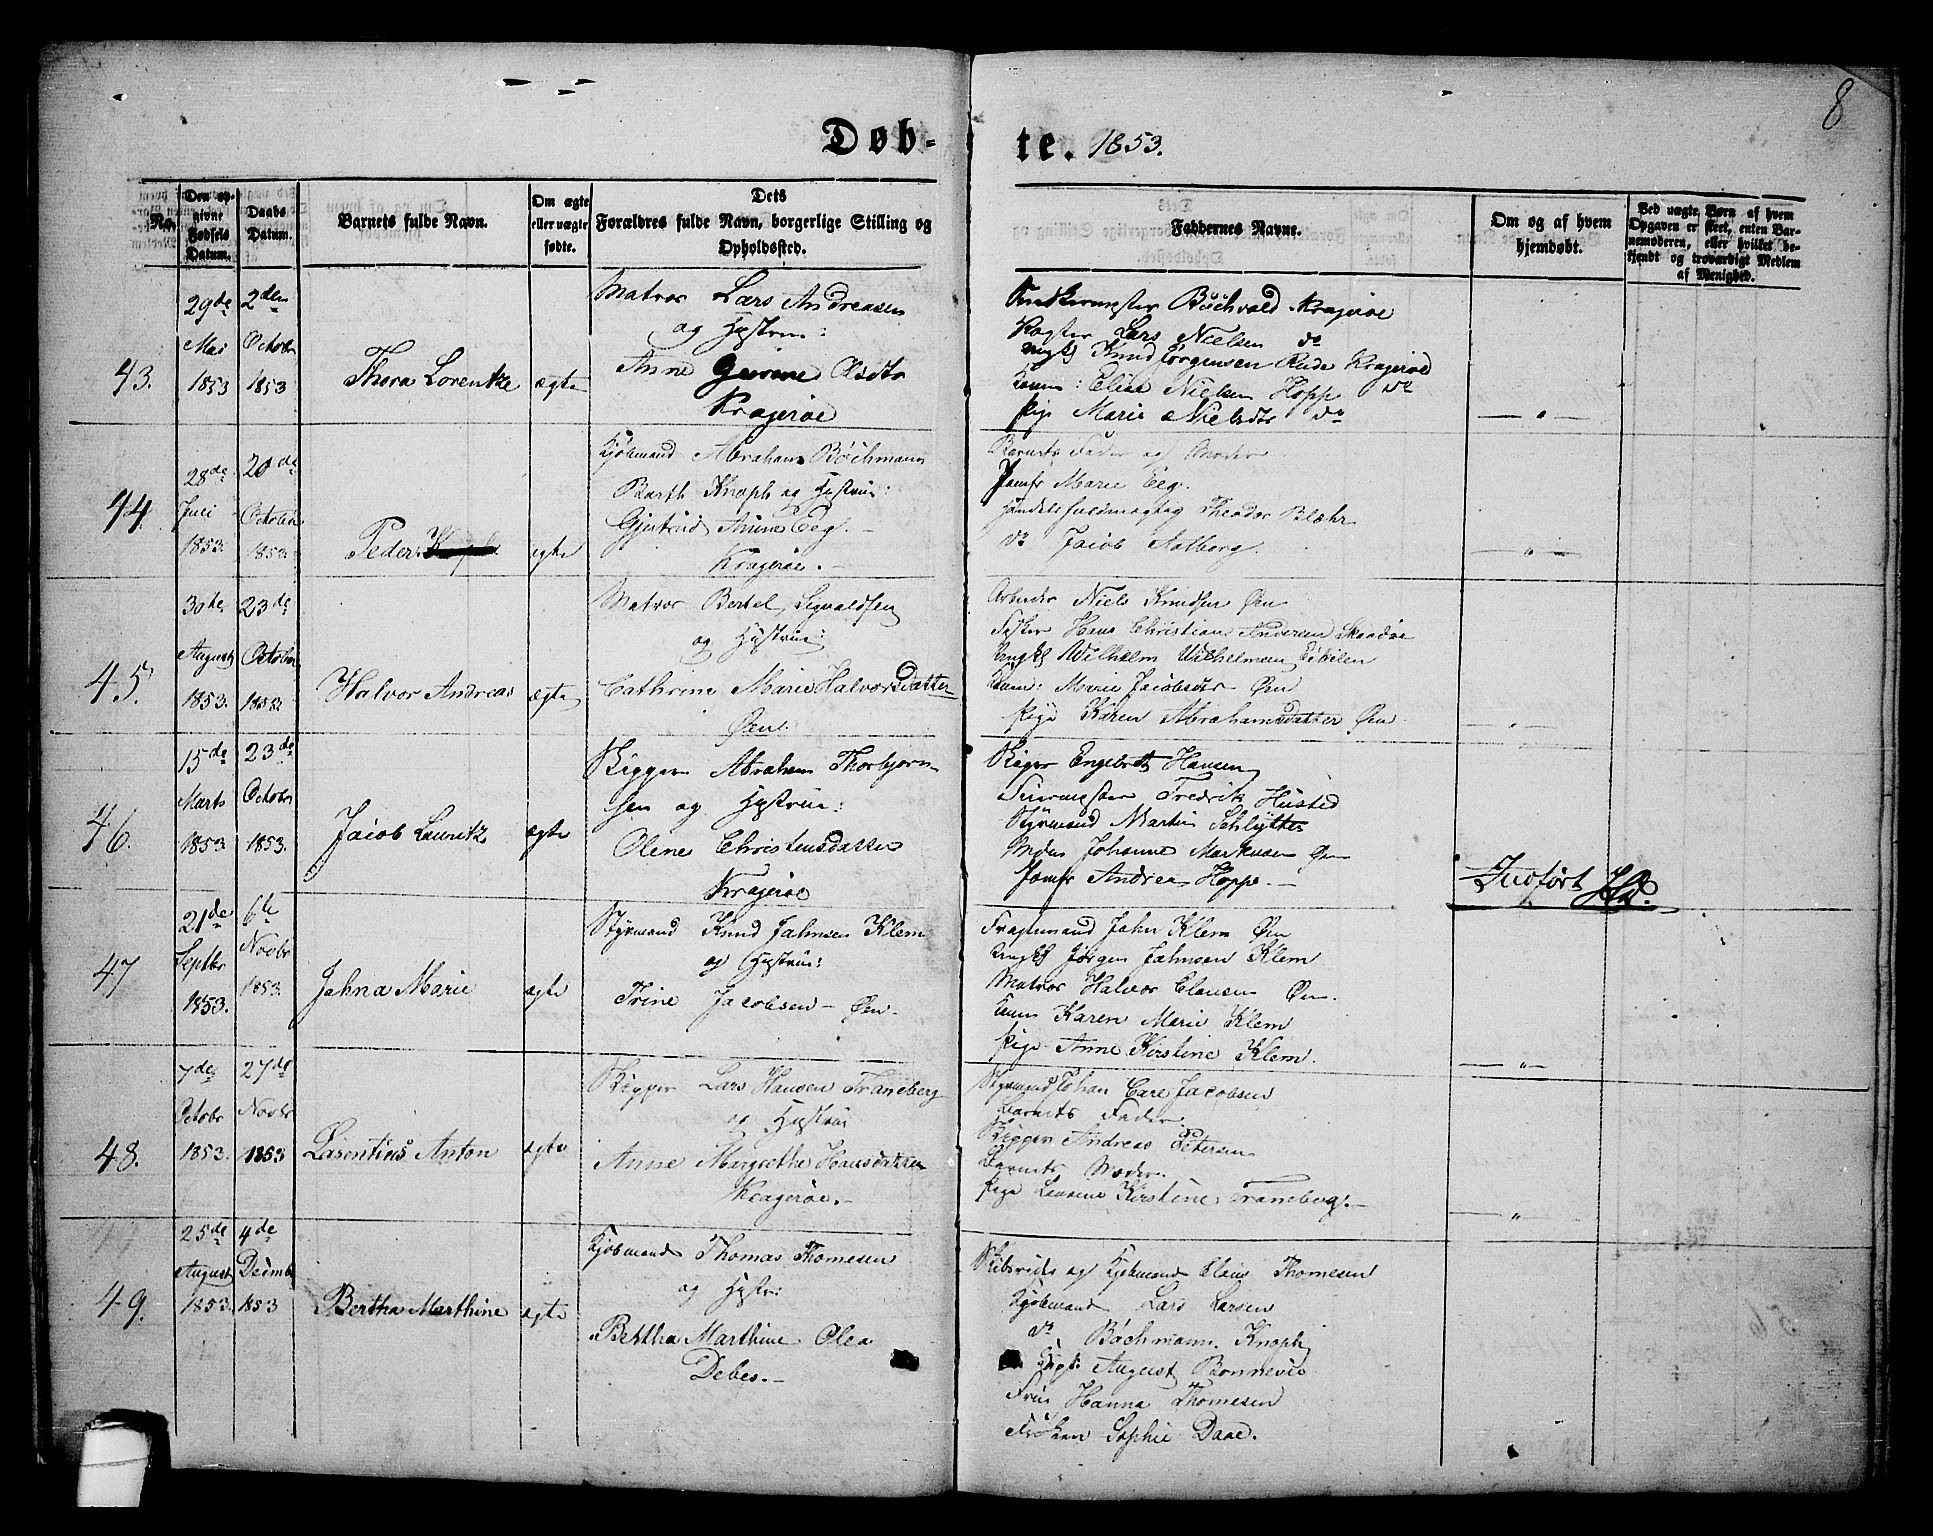 8
Døb-
te. 1853.
No.
Den op-
givne
Fødsels
Datum.
Daabs
Datum.
Barnets fulde Navn.
Om ægte
eller uægte
fødte.
Dets
Forældres fulde Navn, borgerlige Stilling og
Opholdssted.
Faddernes Navne.
Om og af hvem
hjemdøbt.
Ved uægte Børn af hvem
Opgaven er skeet, enten Bar-
nemoderen, eller hvilket be-
kjendt og troværdigt Medlem
af Menighed.
43.
29de
Mai
1853
2den
Octobr
1853
Thora Lorentze
ægte
Matros Lars Andreasen
og Hustrue:
Anne Gurine Olsdtr
Kragerøe
Snedkermester Bøchvald Kragerøe
Lars Nielsen do
Ungk Knud Jørgensen Kragerøe
Elise Nielsen Hopp do
Pige Marie Nielsdtr do
44.
28de
Juli
1853.
20de
October
1853.
Peder
ægte
Kjøbmand Abraham Bøchmann
Barth Knoph og Hustrue:
Gjertrud Anne Eeg.
Kragerøe.
Barnets Fader og Moder
Jomfr Marie Eeg.
Handelsfuldmægtig Theodor Blæhr
do Jacob Aalborg.
45.
30te
August
1853.
23de
Octobr
1853.
Halvor Andreas
ægte
Matros Bertel Sigvaldsen
og Hustrue:
Cathrine Marie Halvorsdatter
Øen.
Arbeider Niels Knudsen Øen
Fisker Hans Christian Andersen Skaadøe
Ungk Wilhelm Wilhelmsen
Marie Jacobsdtr Øen
Pige Karen Abrahamsdatter Øen.
46.
15de
Marts
1853
23de
Octobr
1853.
Jacob Lauritz
ægte
Skipper Abraham Thorbjørn-
sen og Hustrue:
Olene Christensdatter
Kragerøe
Engebrett Hansen
Fredrik Husted
Styrmand Martin Schlytter
Johanne Markusen Øen
Jomfr Andrea Hoppe.
Indført
47
21de
Septbr
1853.
6te
Novbr
1853.
Jahna Marie
ægte
Styrmand Knud Jahnsen Klem
og Hustrue:
Trine Jacobsen - Øen.
John Klem Øen
Ungk Jørgen Jahnsen Klem
Matros Halvor Clausen Øen.
Karen Marie Klem
Pige Anne Kirstine Klem.
48.
7de
Octobr
1853.
27de
Novbr
1853
Laurentius Anton
ægte
Skipper Lars Hansen Traneberg
og Hustrue
Anne Margrethe Hansdatter
Kragerøe.
Styrmand Johan Carl Jacobsen
Barnets Fader.
Skipper Andreas Petersen
Barnets Moder.
Pige Kirstine Traneberg.
49.
25de
August
1853.
4de
Decembr
1853
Bertha Marthine
ægte
Kjøbmand Thomas Thomesen
og Hustr:
Bertha Marthine Olea
Debes.
Skibsreder og Kjøbmand Claus Thomesen
Kjøbmand Lars Larsen
do Bøchmann Knoph
Ungk: August Bonnevie
Frue Hanna Thomesen
Frøken Sophie Daae.